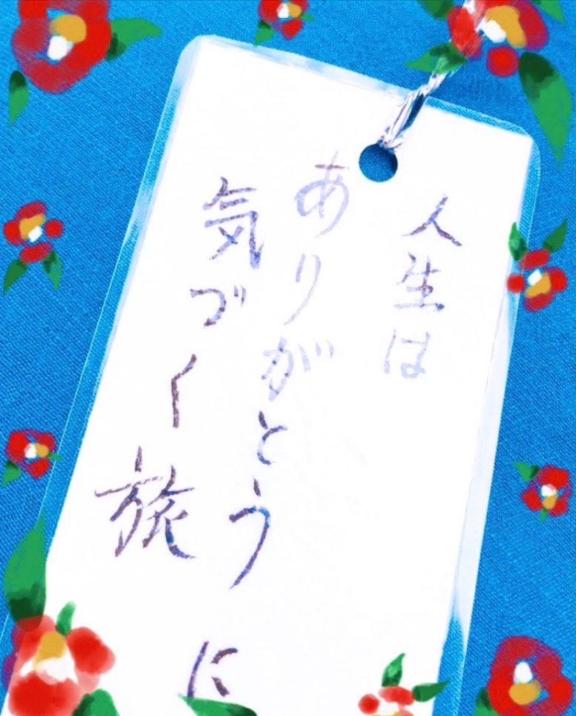 人生は
ありがとうに
気づく旅